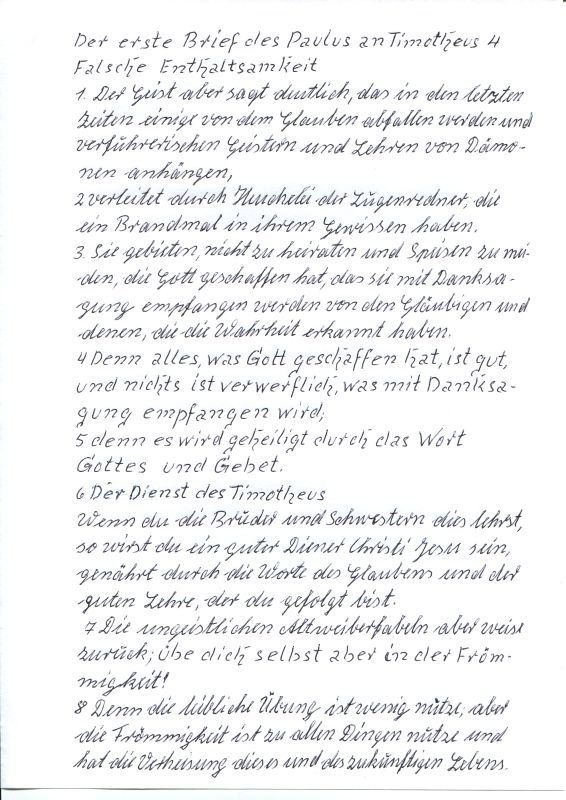 Der erste Brief des Paulus an Timotheus 4
Falsche Enthaltsamkeit
1. Der Geist aber sagt deutlich, das in den letzten
Zeiten einige von dem Glauben abfallen werden und
verführerischen Geistern und Lehren von Dämo-
nen anhängen,
2 verleitet durch Heuchelei der Lügenredner, die
ein Brandmal in ihrem Gewissen haben.
3. Sie gebieten, nicht zu heiraten und Speisen zu mei-
den, die Gott geschaffen hat, das sie mit Danksa-
gung empfangen werden von den Gläubigen und
denen, die die Wahrheit erkannt haben.
4 Denn alles, was Gott geschaffen hat, ist gut,
und nichts ist verwerflich, was mit Danksa-
gung empfangen wird;
5 denn es wird geheiligt durch das Wort
Gottes und Gebet.
6 Der Dienst des Timotheus
Wenn du die Brüder und Schwestern dies lehrst,
so wirst du ein guter Diener Christi Jesu sein,
genährt durch die Worte des Glaubens und der
guten Lehre, der du gefolgt bist.
7 Die ungeistlichen Altweiberfabeln aber weise
zurück; übe dich selbst aber in der Fröm-
migkeit!
8 Denn die leibliche Übung ist wenig nütze; aber
die Frömmigkeit ist zu allen Dingen nütze und
hat die Verheisung dieses und des zukünftigen Lebens.